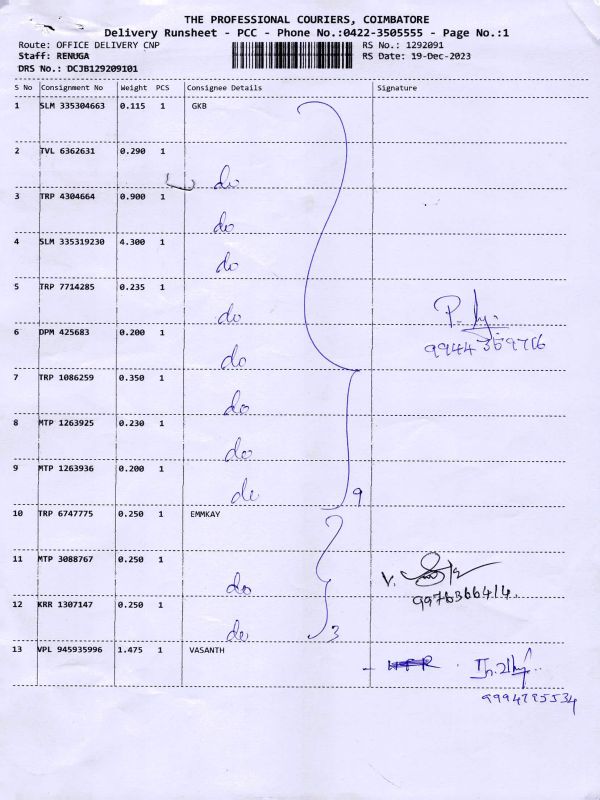 THE PROFESSIONAL COURIERS, COIMBATORE
Delivery Runsheet - PCC - Phone No.:0422-3505555 - Page No.:1
Route: OFFICE DELIVERY CNP RS No.: 1292091
Staff: RENUGA RS Date: 19-Dec-2023
DRS No.: DCJB129209101
S No Consignment No Weight PCS Consignee Details Signature
1 SLM 335304663 0.115 1 GKB
2 TVL 6362631 0.290 1
do
3 TRP 4304664 0.900 1
do
4 SLM 335319230 4.300 1
do
5 TRP 7714285 0.235 1
do
P.
6 DPM 425683 0.200 1
do
7 TRP 1086259 0.350 1
do
8 MTP 1263925 0.230 1
do
9 MTP 1263936 0.200 1
do 9
10 TRP 6747775 0.250 1 EMMKAY
11 MTP 3088767 0.250 1
do V.
9976366414.
12 KRR 1307147 0.250 1
do 3
13 VPL 945935996 1.475 1 VASANTH